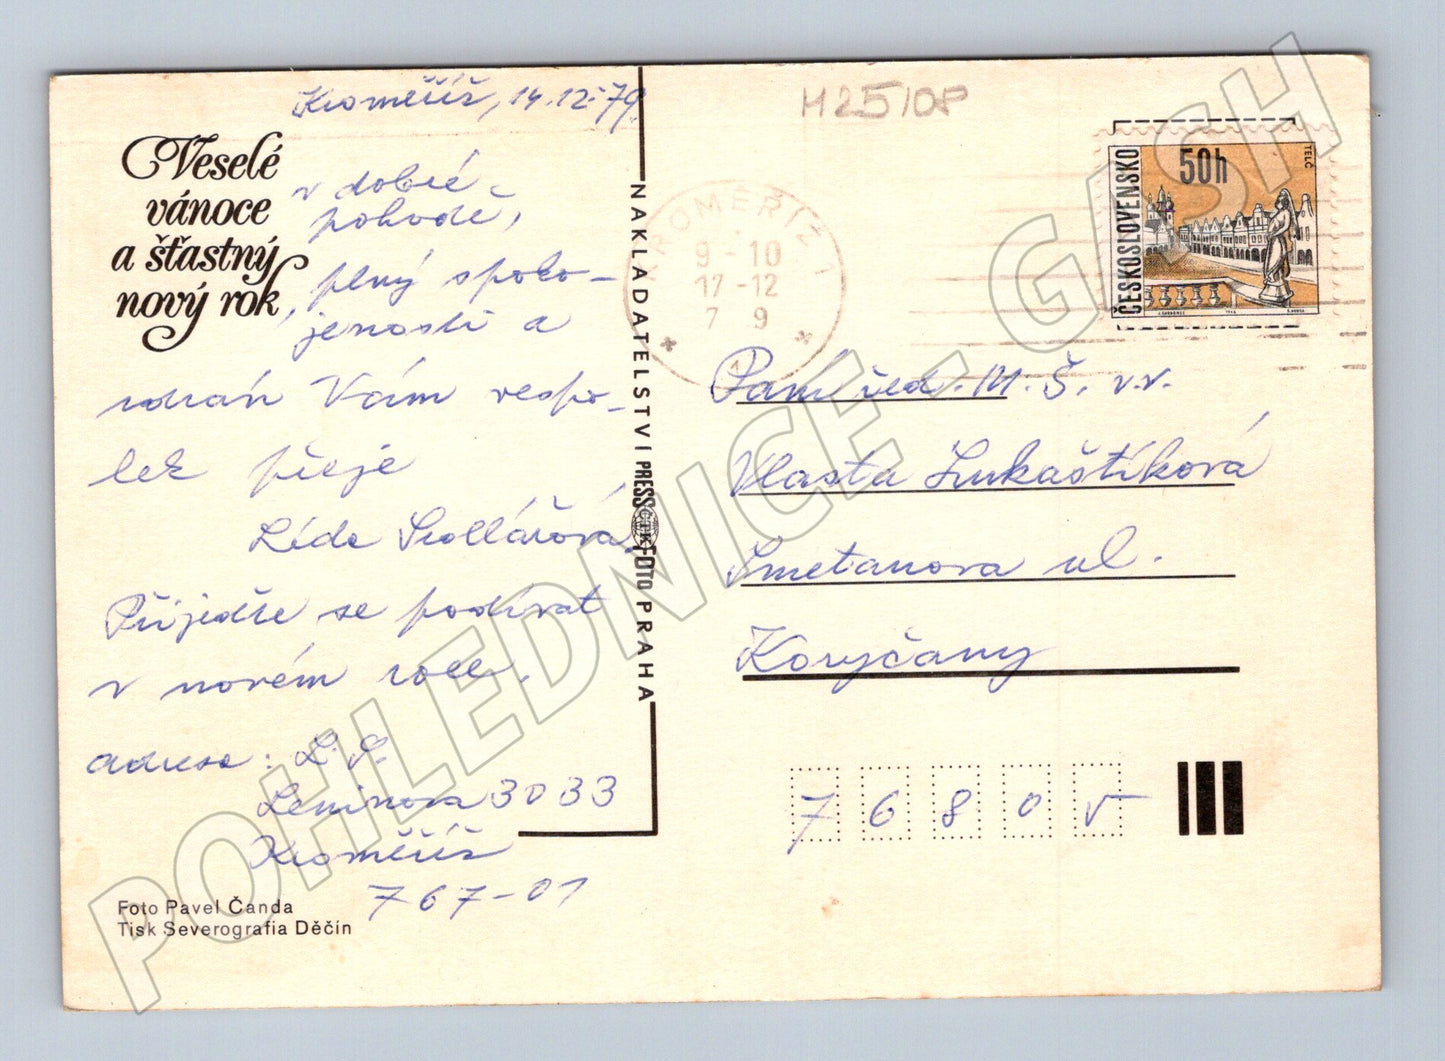 Kroměříž, 14.12.79.
Veselé
vánoce
a šťastný
nový rok
v dobré
pohodě,
, plný spoko-
jenosti a
zdraví Vám vespo-
lek přeje
Lída
Přijeďte se podívat
v novém roce.
adresa: L. S.
Leninova 3033
Kroměříž
767-01
Foto Pavel Čanda
Tisk Severografia Děčín
NAKLADATELSTVÍ PRESSFOTO PRAHA
ČTK
M25108
KROMĚŘÍŽ 1
9-10
17-12
7 9
ČESKOSLOVENSKO
50h
TELČ
Paní řed. M. Š. v.v.
Vlasta Lukaštíková
Smetanova ul.
Koryčany
76805
POHLEDNICE - GASH